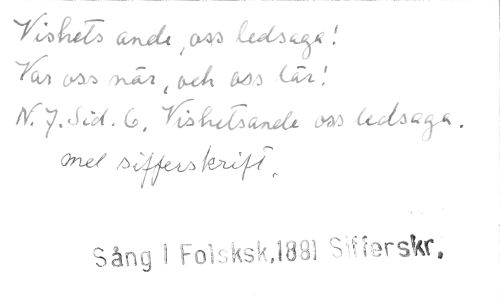 Vishets ande, oss ledsaga!
Var oss när, och oss lär!
N. 7. Sid. 6. Vishetsande oss ledsaga.
med sifferskrift.
Sång i Folsksk,1881 Sifferskr.